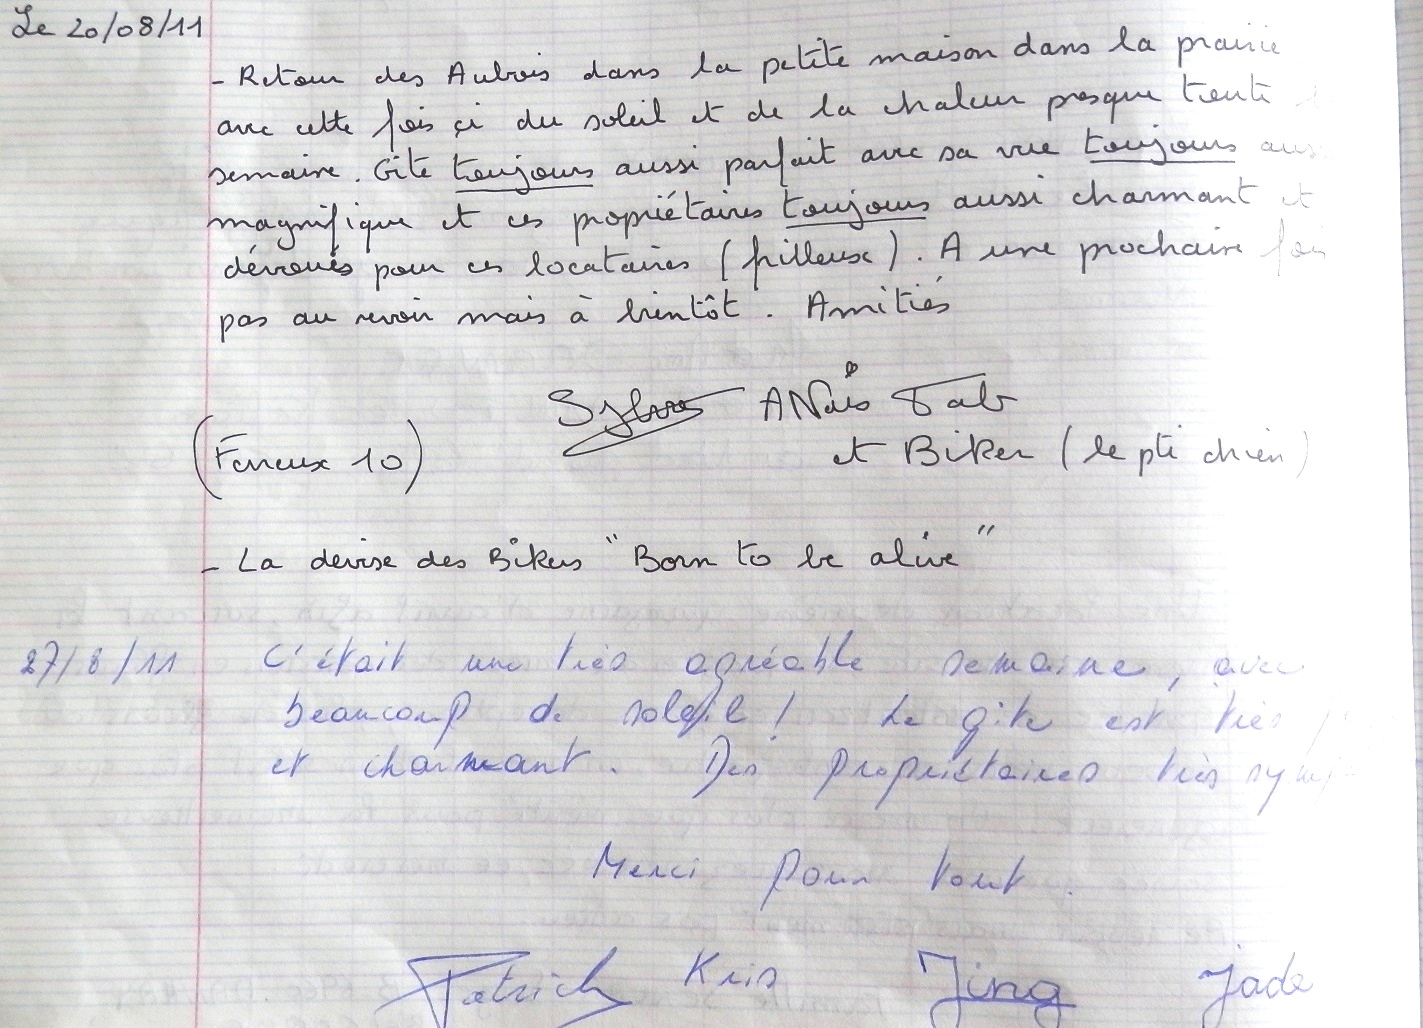 Le 20/08/11
- Retour des Aubois dans la petite maison dans la prairie
avec cette fois çi du soleil et de la chaleur presque toute
semaine. Gîte toujours aussi parfait avec sa vue toujours aus
magnifique et ces propriétaires toujours aussi charmant et
dévoués pour ces locataires (frilleux). A une prochaine fois
pas au revoir mais à bientôt. Amitiés
ANaïs Fab
(Feneux 10) et Biker (le pti chien)
- La devise des Bikers "Born to be alive"
27/8/11 C'était une très agréable semaine, avec
beaucoup de soleil! Le gîte est très
et charmant. Des propriétaires très symp
Merci pour tout.
Patrick Kris Jing Jade